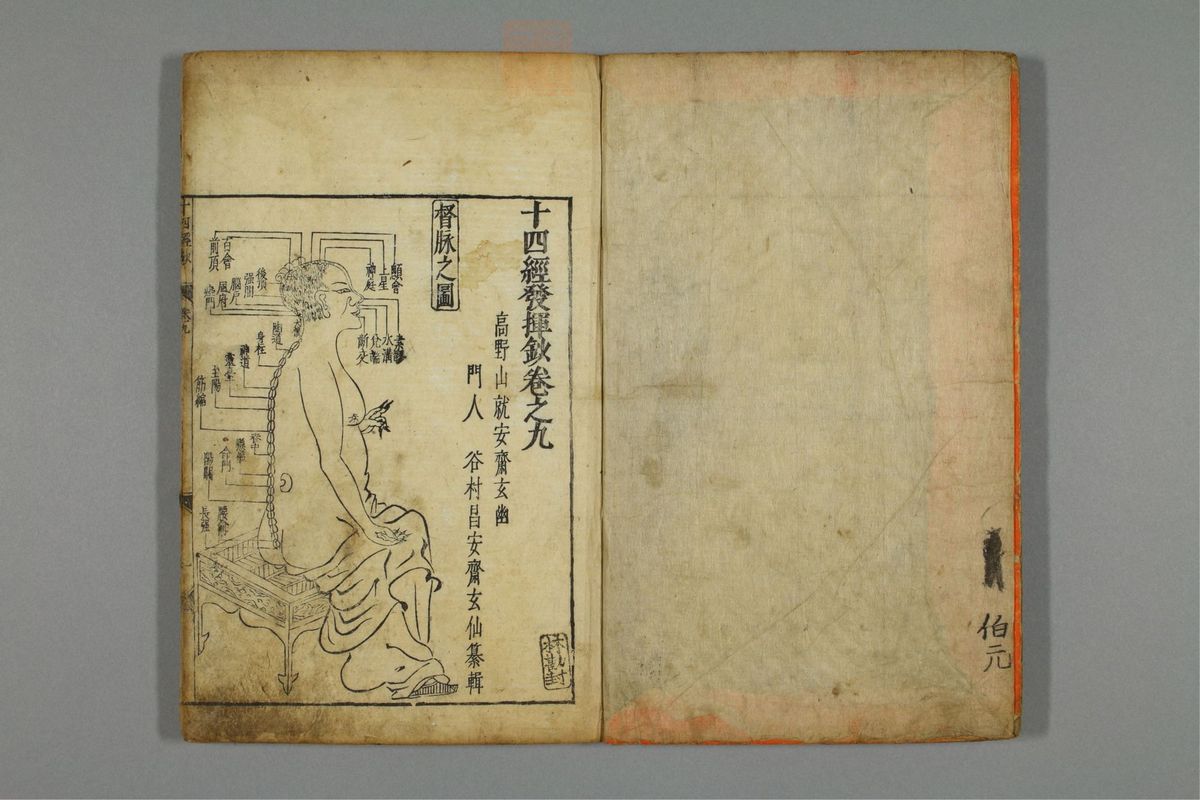 伯元
十四經發揮鈔卷之九
高野山就安齋玄幽
門人 谷村昌安齋玄仙纂輯
督脉之圖
顖會
上星
神庭
水溝
兌端
齗交
百會
前頂
後頂
強間
腦戶
風府
瘂門
陶道
身柱
神道
靈臺
至陽
筋縮
脊中
懸樞
命門
陽關
腰俞
長強
十四經鈔 卷九